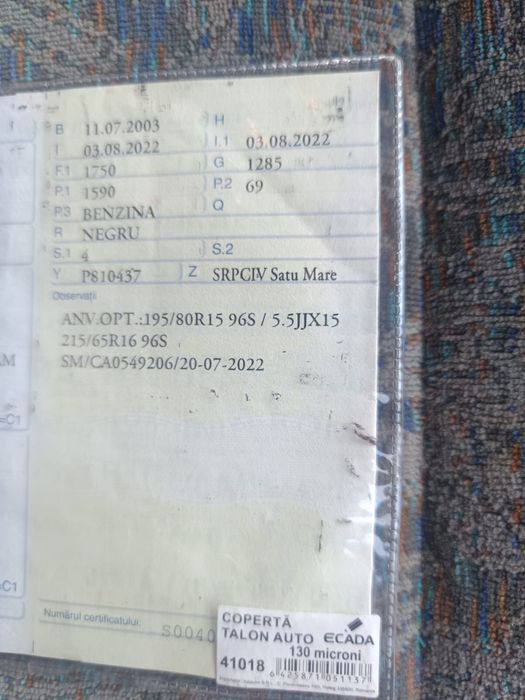 B 11.07.2003 H
I 03.08.2022 I.1 03.08.2022
F.1 1750 G 1285
P.1 1590 P.2 69
P.3 BENZINA Q
R NEGRU
S.1 4 S.2
Y P810437 Z SRPCIV Satu Mare
Observații
ANV.OPT.:195/80R15 96S / 5.5JJX15
215/65R16 96S
SM/CA0549206/20-07-2022
AM
=C1
=C1
Numărul certificatului: S0040
COPERTĂ
TALON AUTO ECADA
130 microni
41018
6 425871 051137